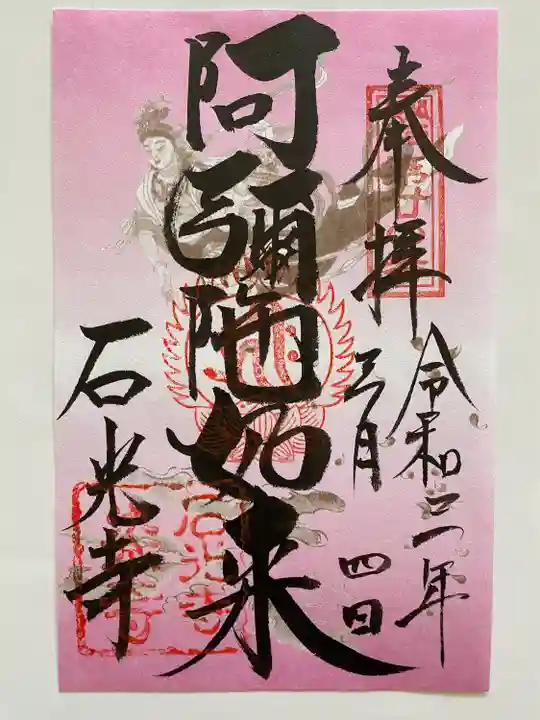 奉拝
令和二年
三月
四日
阿彌陀如来
石光寺